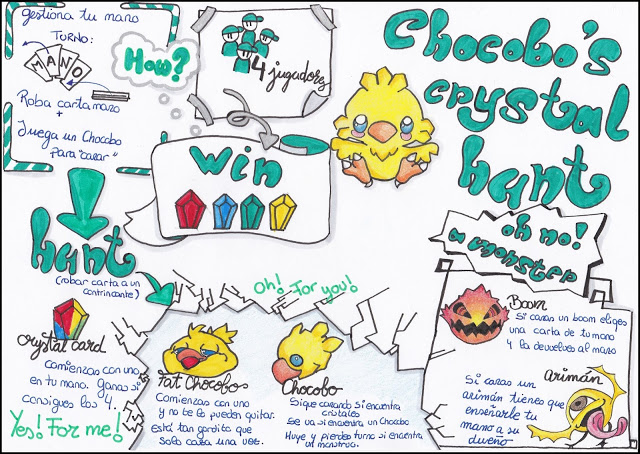 gestiona tu mano
TURNO:
MANO
Roba carta mazo
+
Juega un Chocobo
para "cazar"
How?
4 jugadores
Chocobo's
crystal
hunt
win
hunt
(robar carta a un
contrincante)
crystal card
comienzas con uno
en tu mano. Ganas si
consigues los 4.
Yes! For me!
Oh! For you!
Fat Chocobos
Comienzas con uno
y no te lo pueden quitar.
Está tan gordito que
solo caza una vez.
Chocobo
Sigue cazando si encuentra
cristales
Se va si encuentra un Chocobo
Huye y pierdes turno si encuentra
un monstruo.
oh no!
a monster
Boom
Si cazas un boom eliges
una carta de tu mano
y la devuelves al mazo
Arimán
Si cazas un
arimán tienes que
enseñarle tu
mano a su
dueño